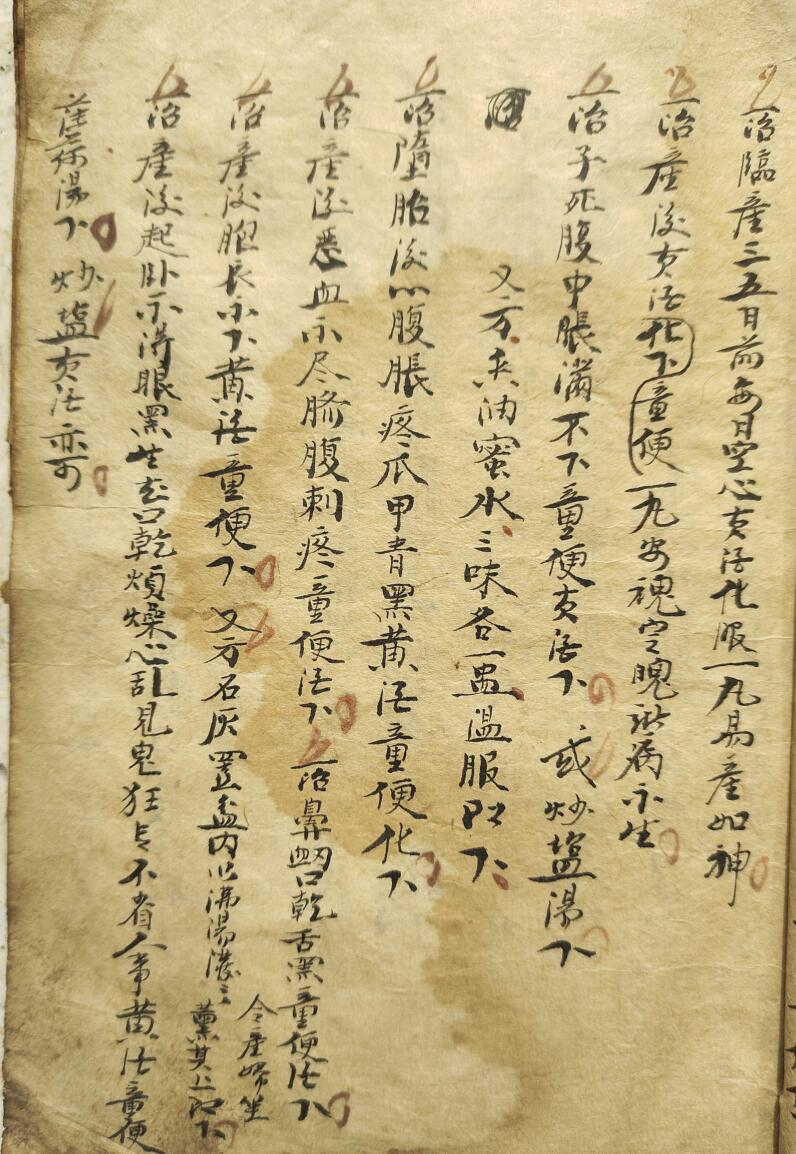 一治臨產三五日前每日空心黄活化服一丸易產如神
一治產后黄活化下童便一丸安魂定魄諸病不生
一治子死腹中脹滿不下童便黄活下或炒塩湯下
又方夫油蜜水三味各一盅温服即下
一治墮胎后心腹脹疼爪甲青黑黄活童便化下
一治產后惡血不尽臍腹刺疼童便活下一治鼻衄口乾舌黑童便活下
一治產后胞衣不下黄活童便下又方石灰置盆内以沸湯潑之令產婦坐薰其上即下
一治產后起卧不得眼黑生花口乾煩燥心乱見鬼狂言不省人事黄活童便
湯下炒塩黄活亦可